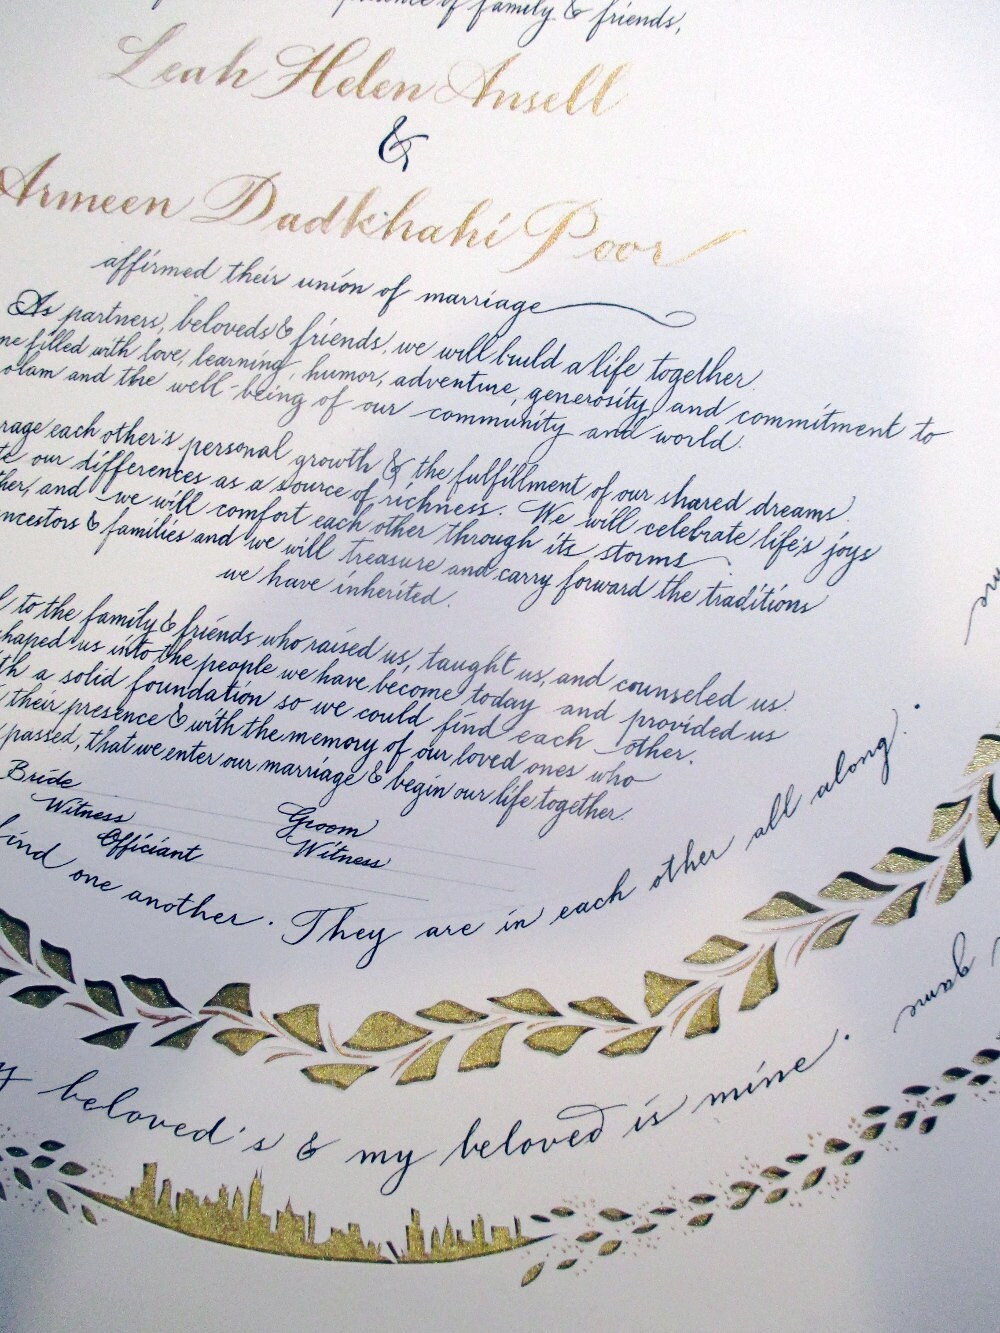 of family & friends,
Leah Helen Ansell
&
Armeen Dadkhahi Poor
affirmed their union of marriage
As partners, beloveds & friends, we will build a life together,
filled with love, learning, humor, adventure, generosity, and commitment to
olam and the well-being of our community and world.
each other's personal growth & the fulfillment of our shared dreams
our differences as a source of richness. We will celebrate life's joys
and we will comfort each other through its storms
& families and we will treasure and carry forward the traditions
we have inherited.
to the family & friends who raised us, taught us, and counseled us.
us into the people we have become today and provided us
a solid foundation so we could find each other.
their presence & with the memory of our loved ones who
passed, that we enter our marriage & begin our life together.
Bride
Groom
Witness
Witness
Officiant
find one another. They are in each other all along.
beloved's & my beloved is mine.